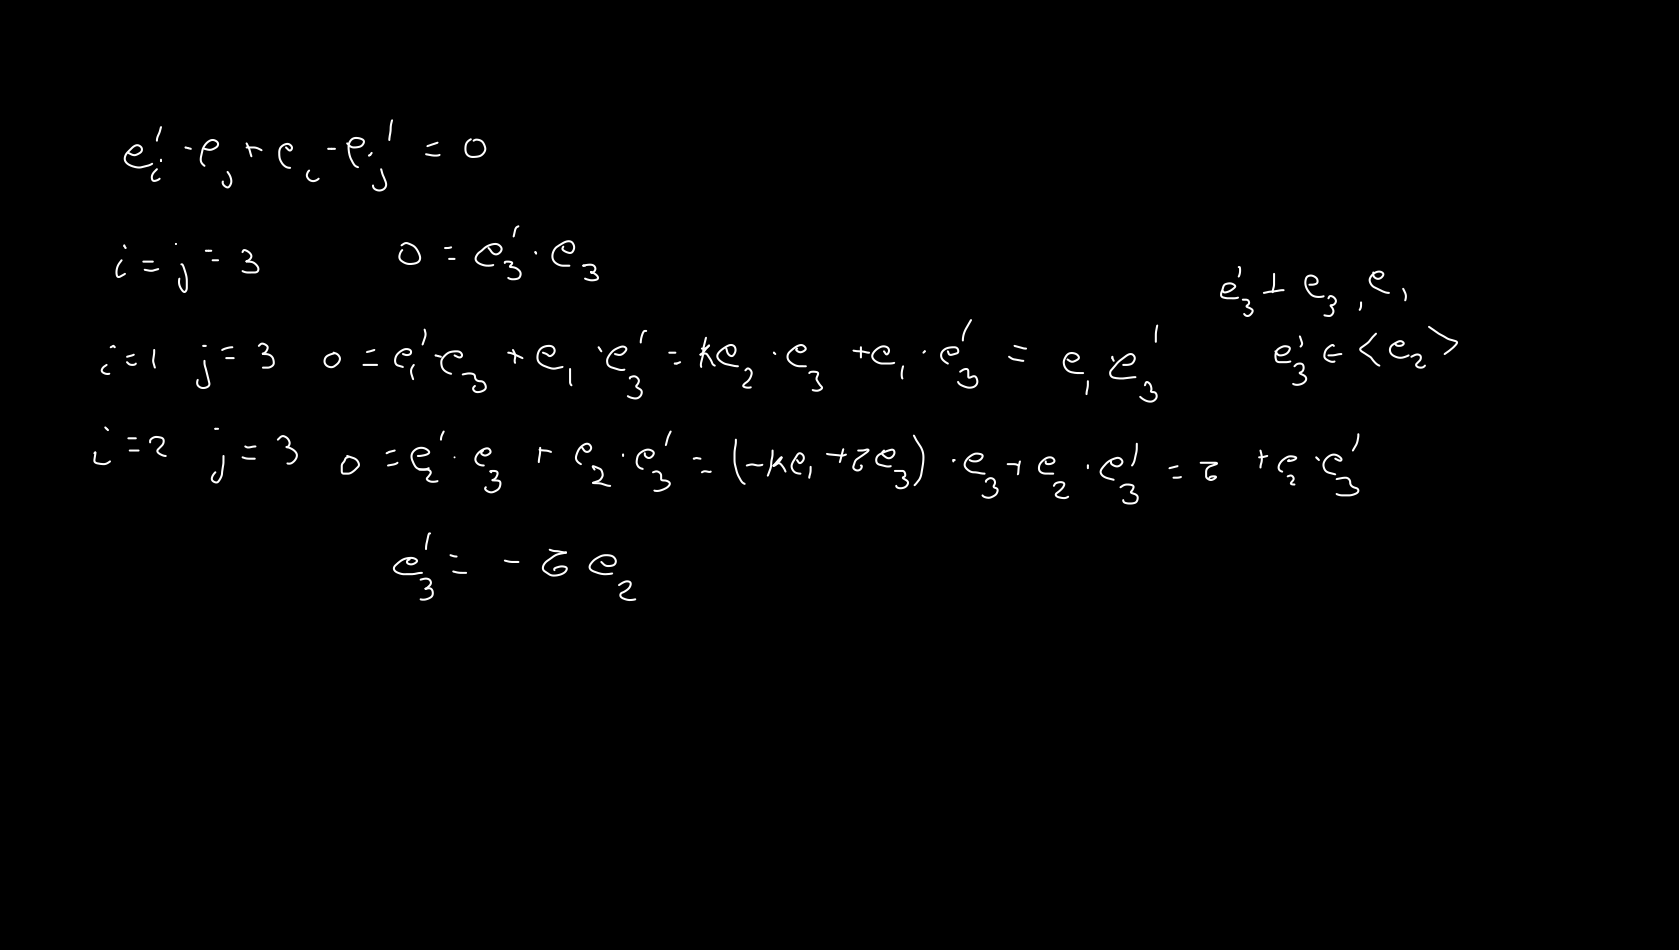 e_i' · e_j + e_i · e_j' = 0
i = j = 3 0 = e_3' · e_3
e_3' ⊥ e_3, e_1
i=1 j=3 0 = e_1' · e_3 + e_1 · e_3' = k e_2 · e_3 + e_1 · e_3' = e_1 · e_3'
e_3' ∈ <e_2>
i=2 j=3 0 = e_2' · e_3 + e_2 · e_3' = (-k e_1 + τ e_3) · e_3 + e_2 · e_3' = τ + e_2 · e_3'
e_3' = - τ e_2